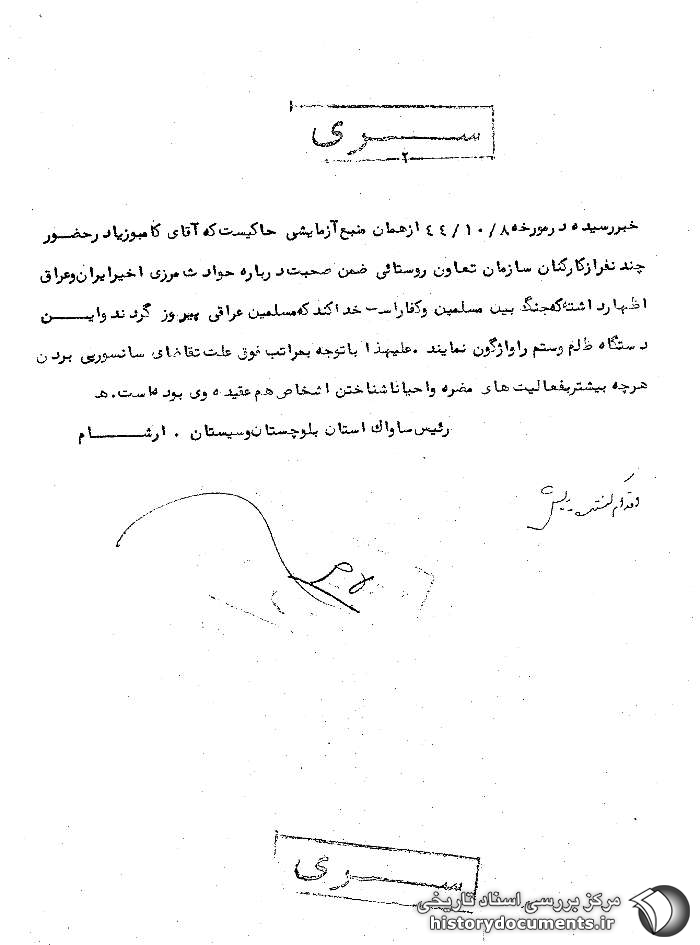 ســـری
-۲-
خبر رسیده در مورخه ۴۴/۱۰/۸ از همان منبع آزمایشی حاکیست که آقای کامبوزیا در حضور
چند نفر از کارکنان سازمان تعاون روستائی ضمن صحبت درباره حوادث مرزی اخیر ایران و عراق
اظهار داشته که جنگ بین مسلمین و کفار است خدا کند که مسلمین عراقی پیروز گردند و ایـــن
دستگاه ظلم و ستم را واژگون نمایند. علیهذا با توجه بمراتب فوق علت تقاضای سانسور پی بردن
هرچه بیشتر بفعالیت های مضره و احیانا شناختن اشخاص هم عقیده وی بوده است. هـ
رئیس ساواک استان بلوچستان و سیستان . ارشــــام
ســـری
مرکز بررسی اسناد تاریخی
historydocuments.ir